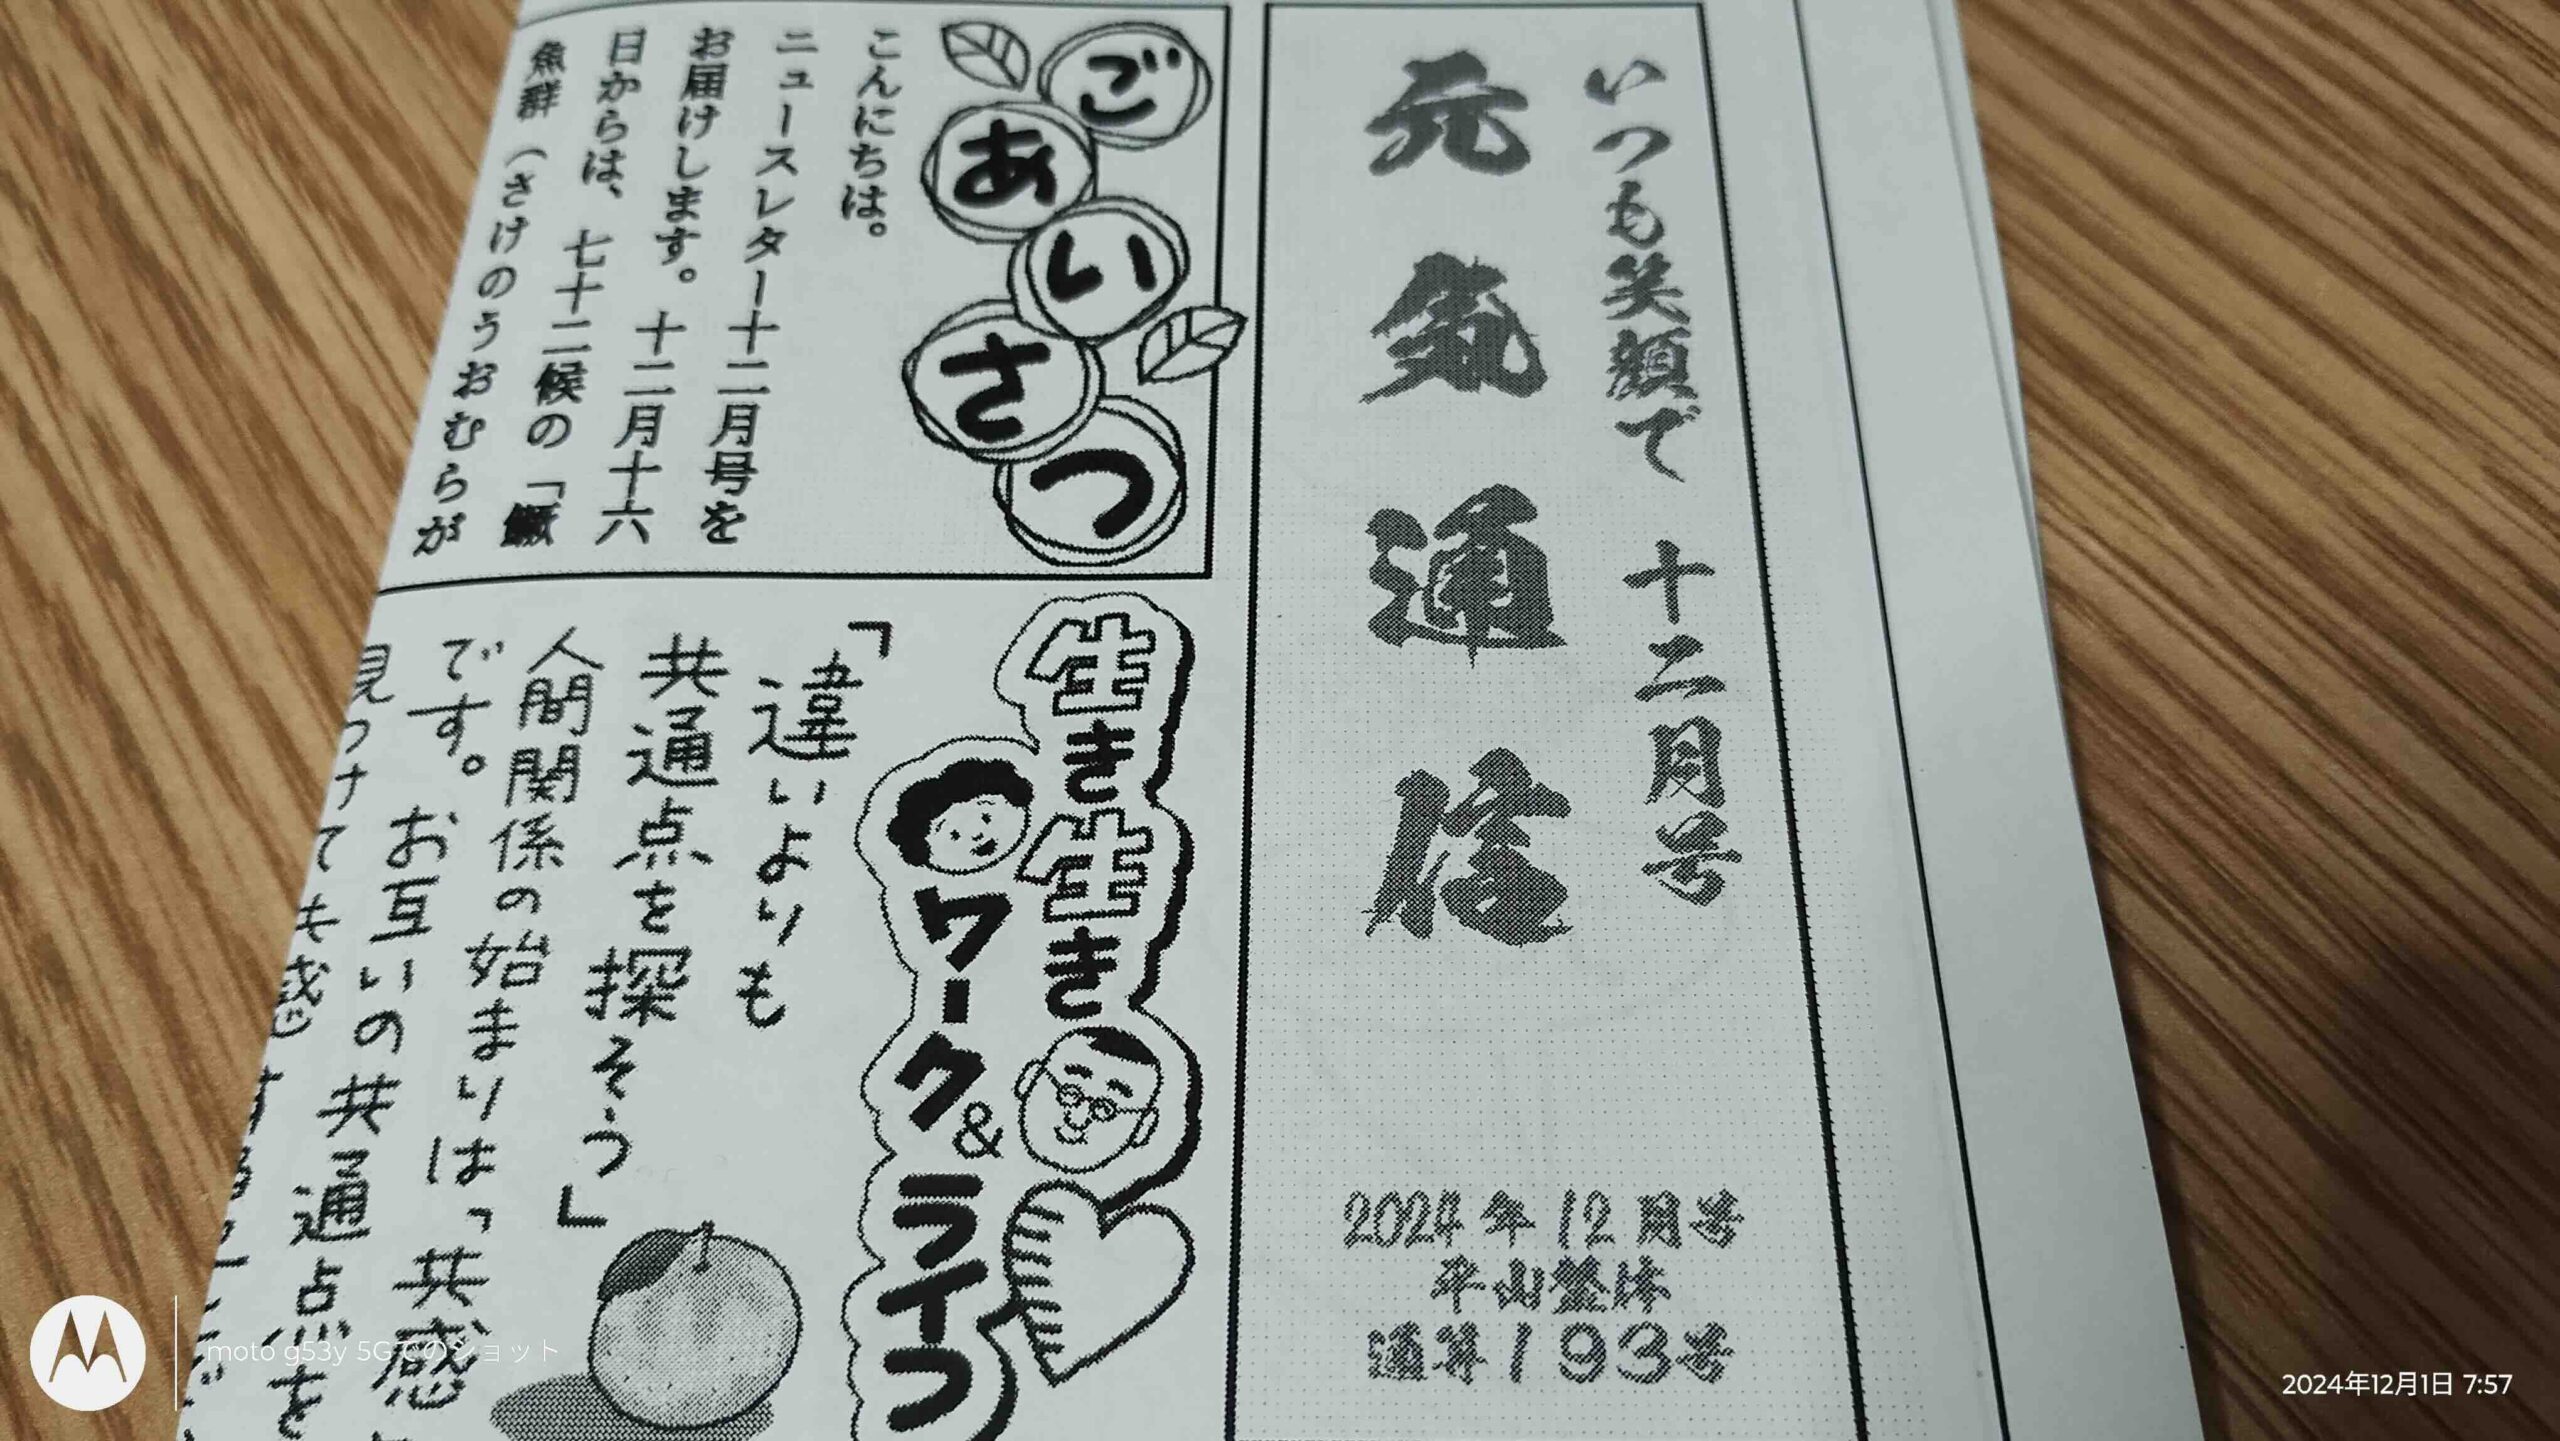 いつも笑顔で 十二月号
元気通信
2024年12月号
平山整体
通算193号
ごあいさつ
こんにちは。
ニュースレター十二月号を
お届けします。十二月十六
日からは、七十二候の「鱖
魚群（さけのうおむらが
生き生き
ワーク&ライフ
「違いよりも
共通点を探そう」
人間関係の始まりは「共感
です。お互いの共通点を
見つけても感
moto g53y 5Gでのショット
2024年12月1日 7:57